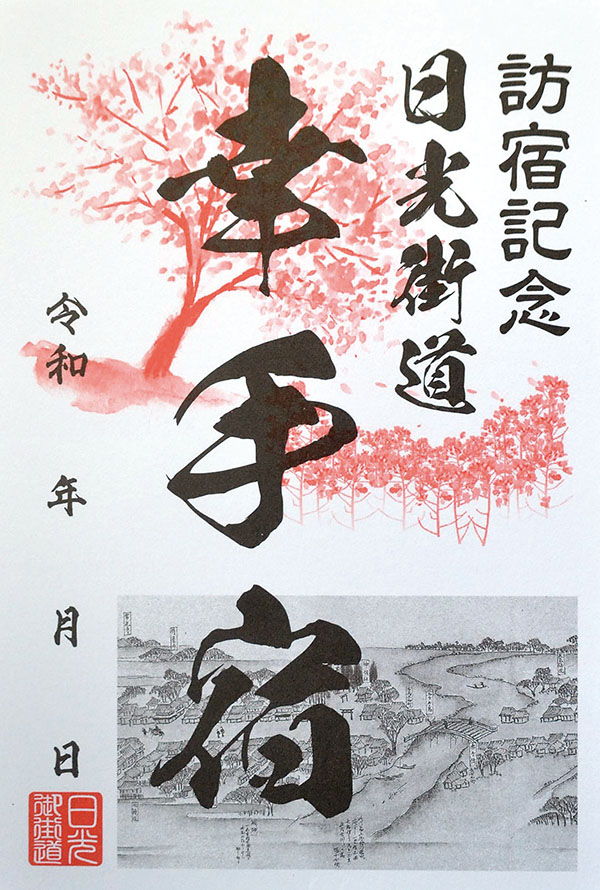 訪宿記念
日光街道
幸手宿
令和 年 月 日
日光
御街道